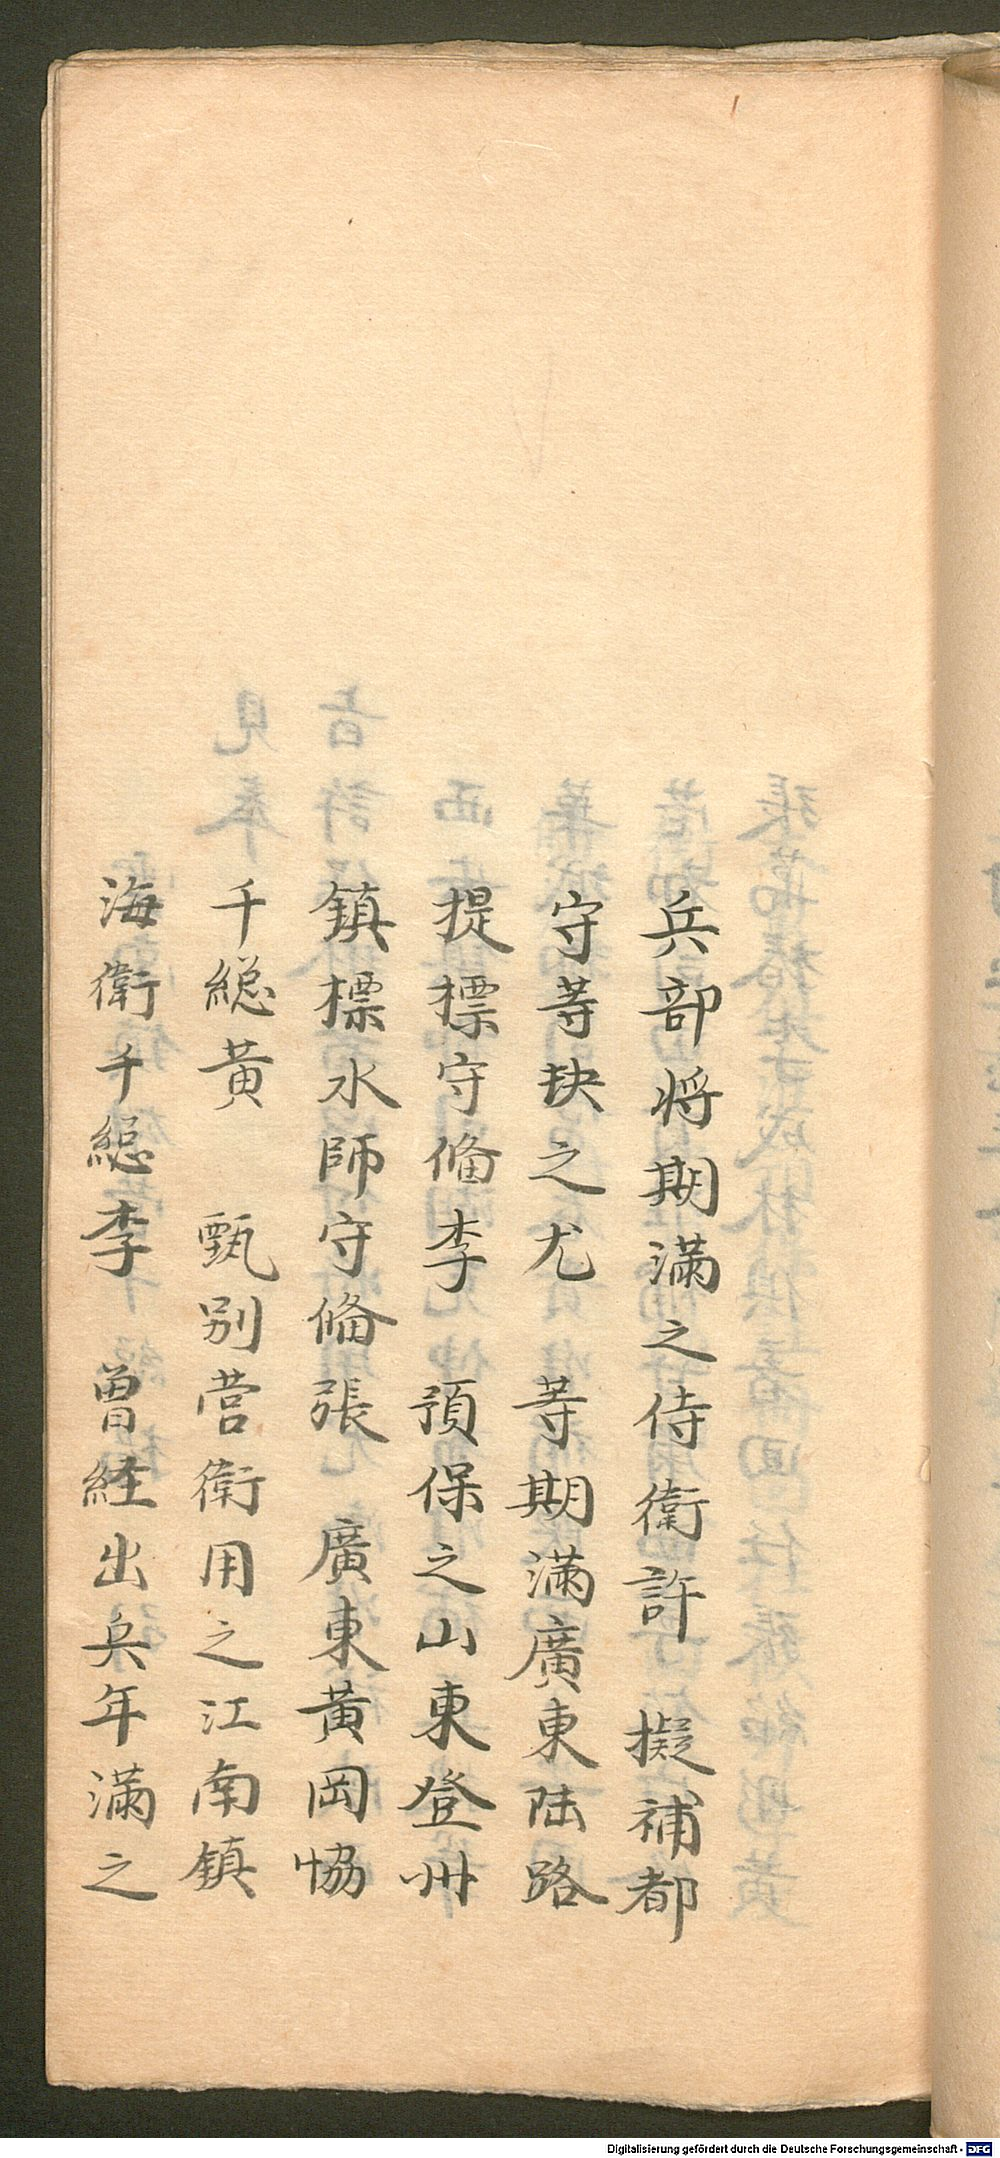 兵部将期滿之侍衛許　擬補都
守䓁缺之尤　䓁期滿廣東陆路
提標守俻李　預保之山東登州
鎮標水師守俻張　廣東黃岡協
千縂黃　甄别营衛用之江南鎮
海衛千縂李　曾経出兵年滿之
Digitalisierung gefördert durch die Deutsche Forschungsgemeinschaft - DFG